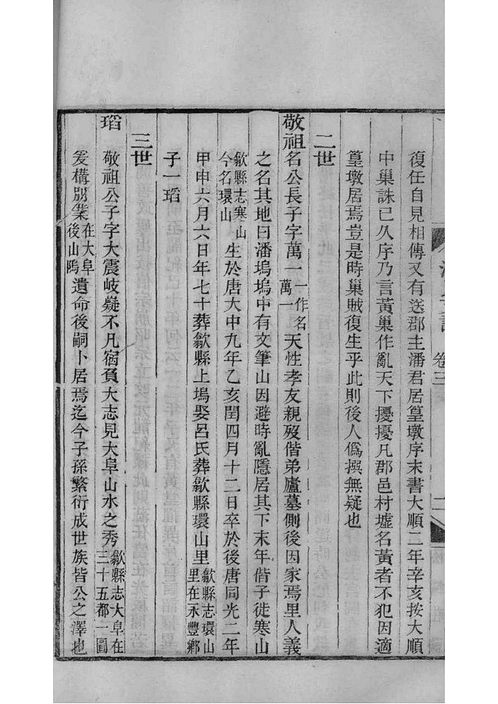 卷三
復任自見相傳又有送郡主潘君居篁墩序末書大順二年辛亥按大順
中巢誅已久序乃言黃巢作亂天下擾擾凡郡邑村墟名黃者不犯因適
篁墩居焉豈是時巢賊復生乎此則後人僞撰無疑也
二世
敬祖名公長子字萬一一作名萬一天性孝友親歿偕弟廬墓側後因家焉里人義
之名其地曰潘塢塢中有文筆山因避時亂隱居其下末年偕子徙寒山
歙縣志寒山今名環山生於唐大中九年乙亥閏四月十二日卒於後唐同光二年
甲申六月六日年七十葬歙縣上塢娶呂氏葬歙縣環山里歙縣志環山里在永豐鄉
子一瑫
三世
瑫敬祖公子字大震岐嶷不凡宿負大志見大阜山水之秀歙縣志大阜在三十五都一圖
爰構別業在大阜後山塢遺命後嗣卜居焉迄今子孫繁衍成世族皆公之澤也